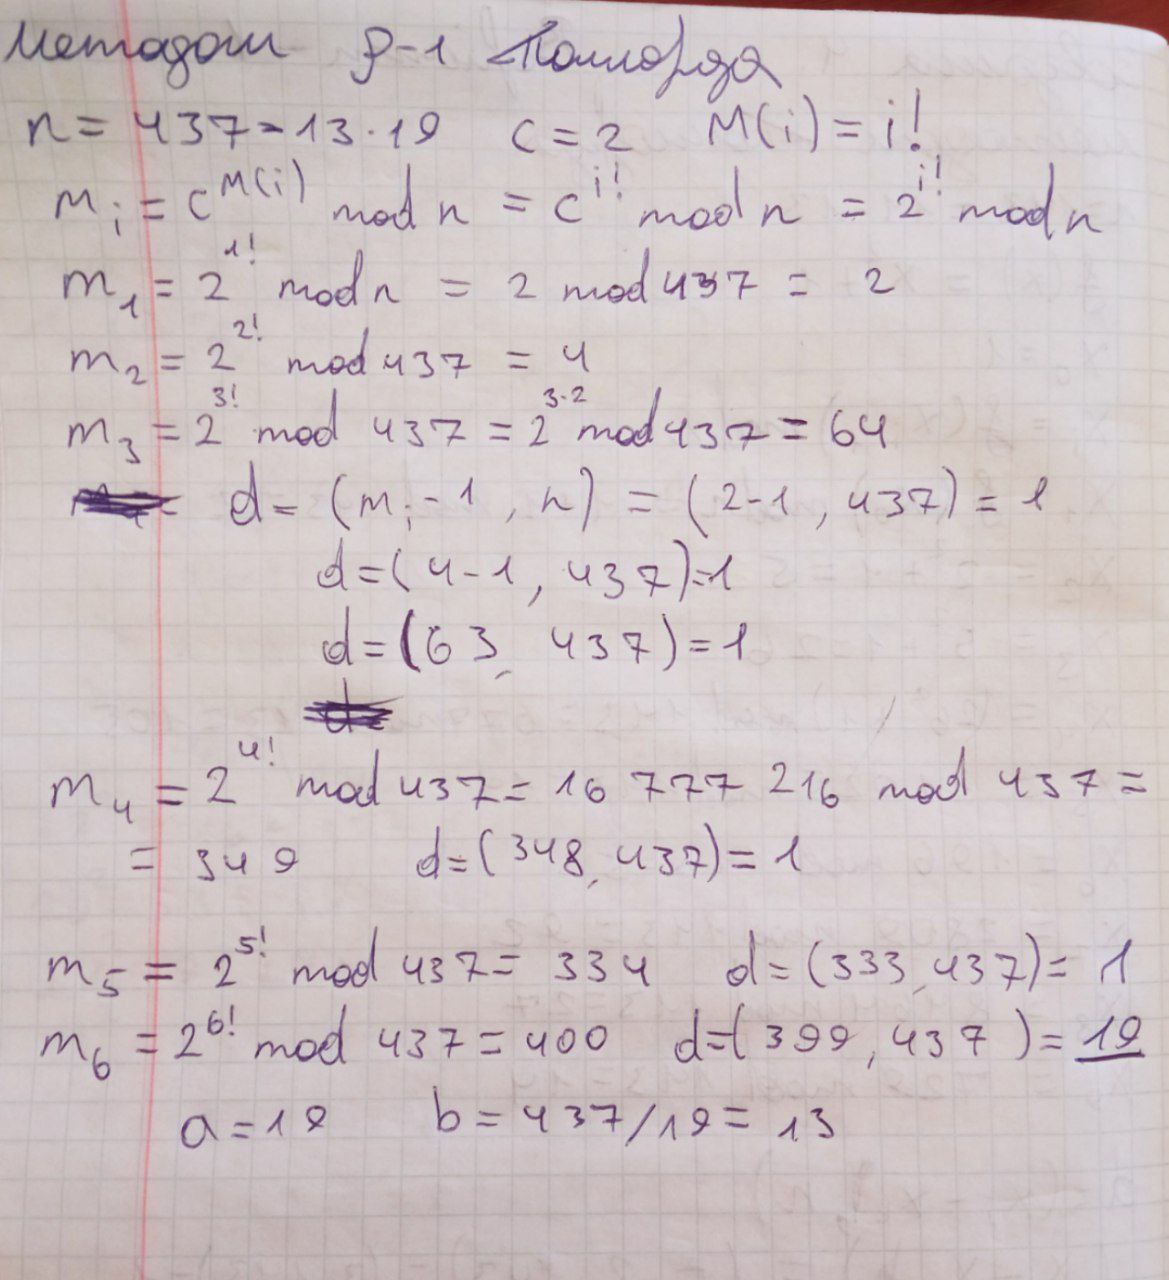 Методом P-1 Полларда
n = 437 = 13 · 19 c = 2 M(i) = i!
m_i = c^{M(i)} mod n = c^{i!} mod n = 2^{i!} mod n
m_1 = 2^{1!} mod n = 2 mod 437 = 2
m_2 = 2^{2!} mod 437 = 4
m_3 = 2^{3!} mod 437 = 2^{3·2} mod 437 = 64
d = (m_i - 1, n) = (2-1, 437) = 1
d = (4-1, 437) = 1
d = (63, 437) = 1
m_4 = 2^{4!} mod 437 = 16 777 216 mod 437 =
= 349 d = (348, 437) = 1
m_5 = 2^{5!} mod 437 = 334 d = (333, 437) = 1
m_6 = 2^{6!} mod 437 = 400 d = (399, 437) = 19
a = 19 b = 437/19 = 13